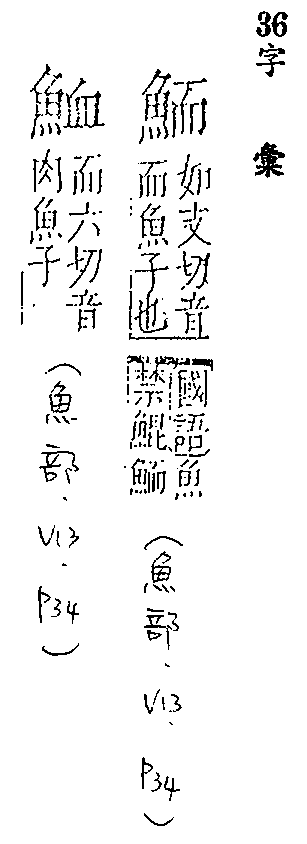 36字彙
鮞
如支切音
而魚子也
國語魚
禁鯤鮞
(魚部.V13.P34)
而六切音
肉魚子
(魚部.V13.P34)